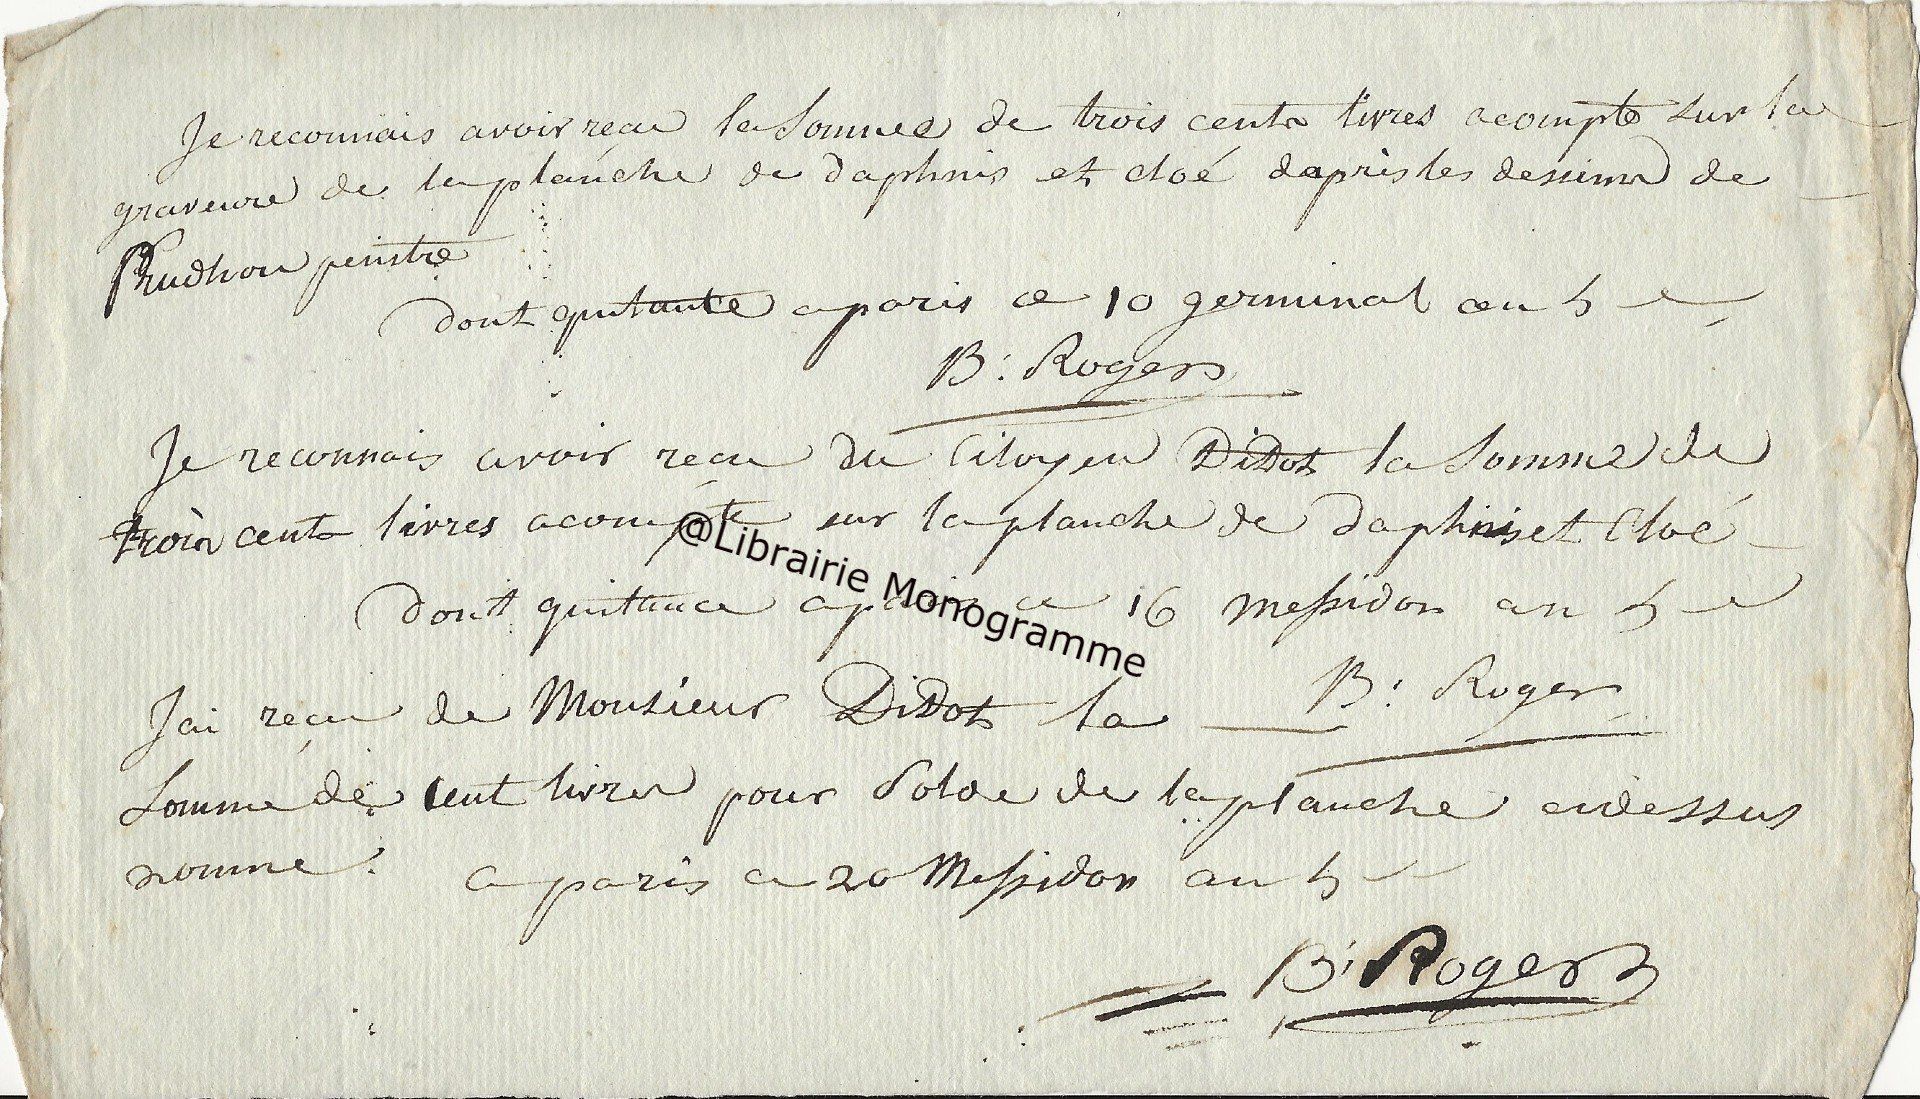 Je reconnais avoir reçu la Somme de trois cents livres acompte sur la
graveure de la planche de daphnis et cloé daprès les dessins de
Prudhon peintre
dont quitance a paris ce 10 germinal an 5
B: Roger
Je reconnais avoir reçu du Citoyen Didot la Somme de
trois cents livres acompte sur la planche de daphnis et Cloé
dont quitance a paris ce 16 Messidor an 5
@Librairie Monogramme
B: Roger
J'ai reçu de Monsieur Didot la
Somme de cent livres pour Solde de la planche cidessus
nomme. a paris ce 20 Messidor an 5
B: Roger